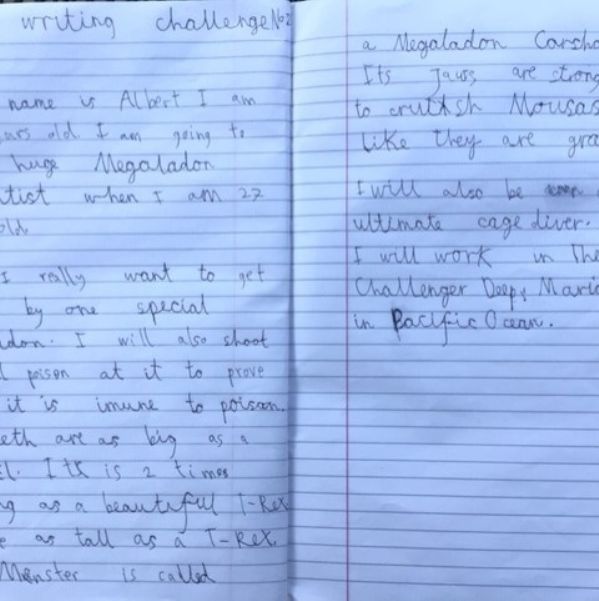 writing challenge No2
name is Albert I am
ars old I am going to
huge Megaladon
tist when I am 27
old.
I really want to get
by one special
adon. I will also shoot
poison at it to prove
it is imune to poison.
eeth are as big as a
Itk is 2 times
as a beautiful T-Rex
as tall as a T-Rex.
Monster is called
a Megaladon Carcho
Its Jauss are strong
to crutksh Mousas
like they are gra
I will also be
ultimate cage diver.
I will work in The
Challenger Deep, Maria
in Pacific Ocean.